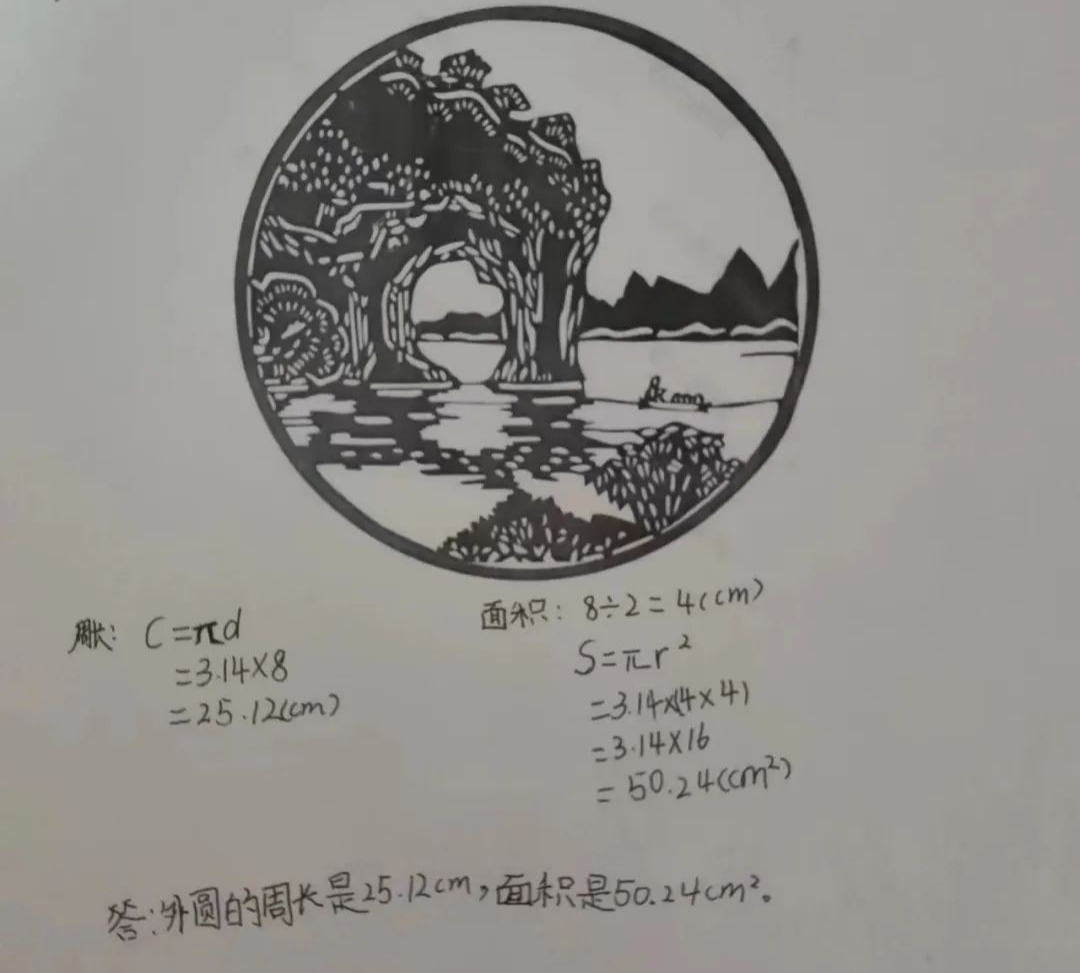 周长：C=πd
=3.14×8
=25.12(cm)
面积：8÷2=4(cm)
S=πr²
=3.14×(4×4)
=3.14×16
=50.24(cm²)
答：外圆的周长是25.12cm，面积是50.24cm²。